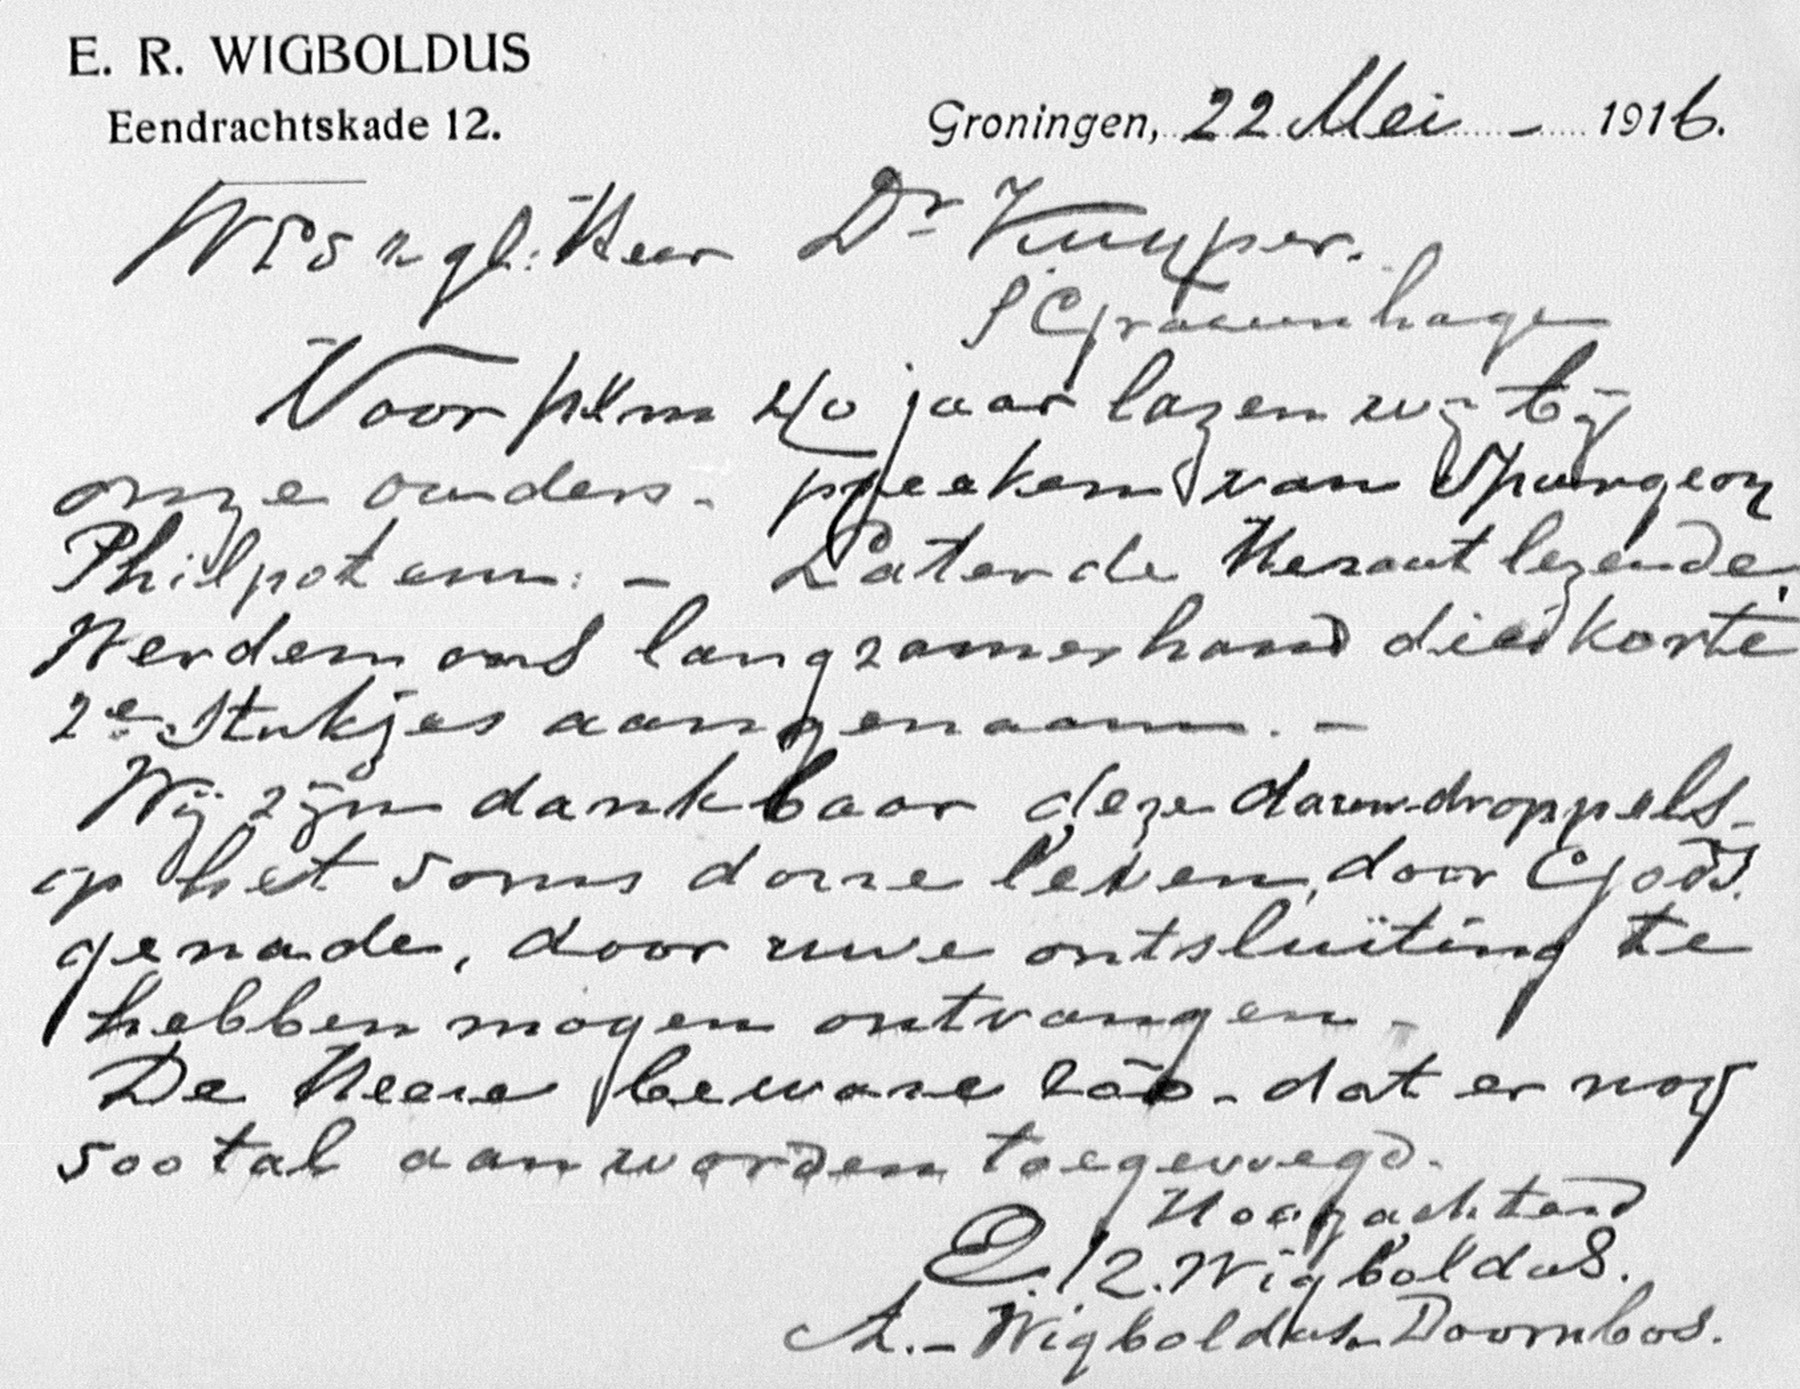 E. R. WIGBOLDUS
Eendrachtskade 12.
Groningen, 22 Mei - 1916.
Heer Dr Kuyper.
S Gravenhage
Voor plm 40 jaar lazen wij bij
onze ouders. preeken van Spurgeon
Philpot enn: - Later de Heraut lezende,
Werden ons langzamerhand die korte
2e Stukjes aangenaam. -
Wij zijn dankbaar deze dauw-droppels-
op het soms dorre leven, door Gods.
genade, door uwe ontsluiting te
hebben mogen ontvangen -
De Heere beware zóó - dat er nog
500 tal aan worden toegevoegd.
Hoogachtend
E. R. Wigboldus.
A. - Wigboldus Doornbos.